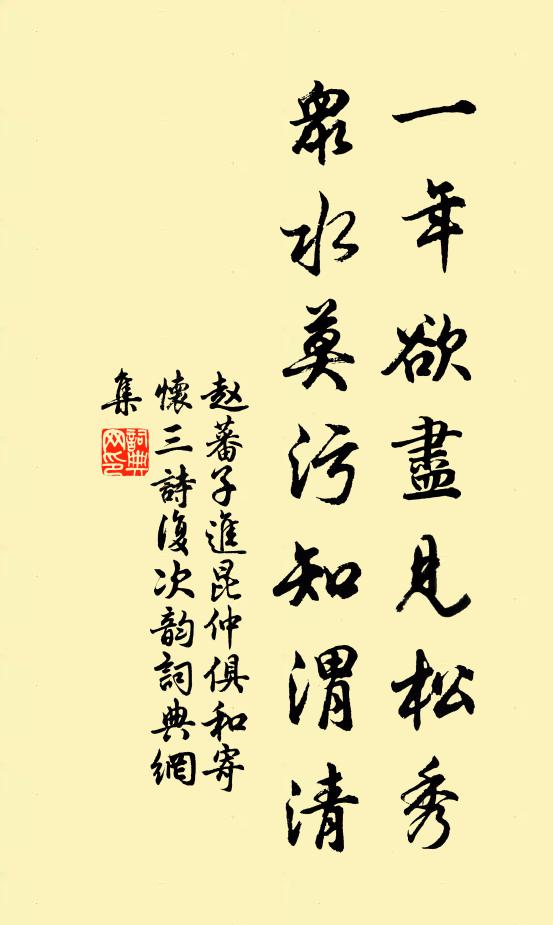 一年欲盡見松秀
眾水莫污知渭清
赵蕃子進昆仲俱和寄
懷三詩復次韵詞典網
集
詞典網印